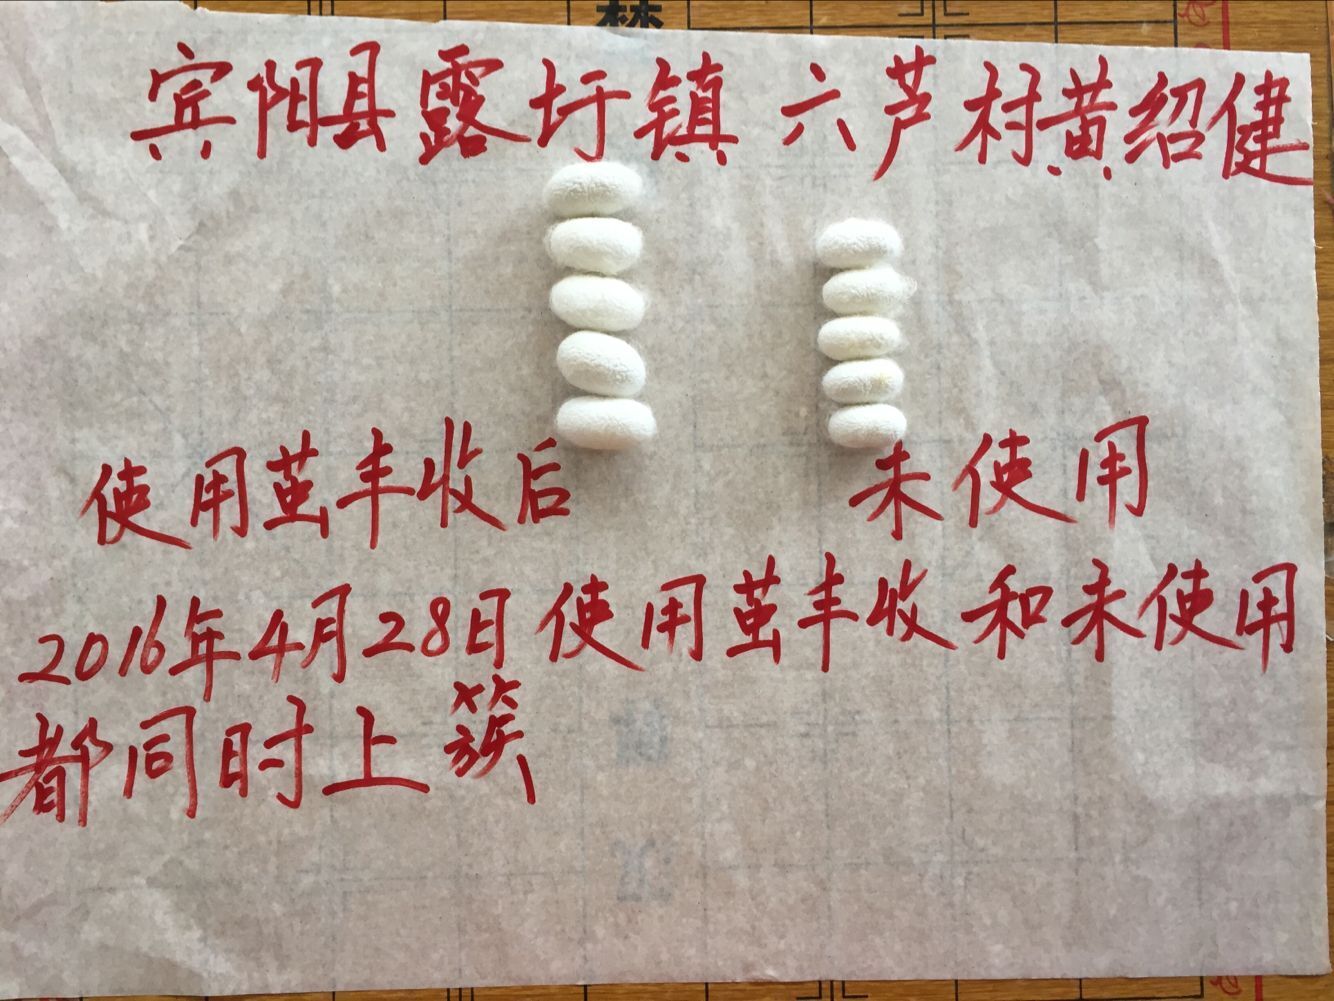 宾阳县露圩镇 六芦村黄绍健
使用茧丰收后
未使用
2016年4月28日使用茧丰收和未使用
都同时上簇